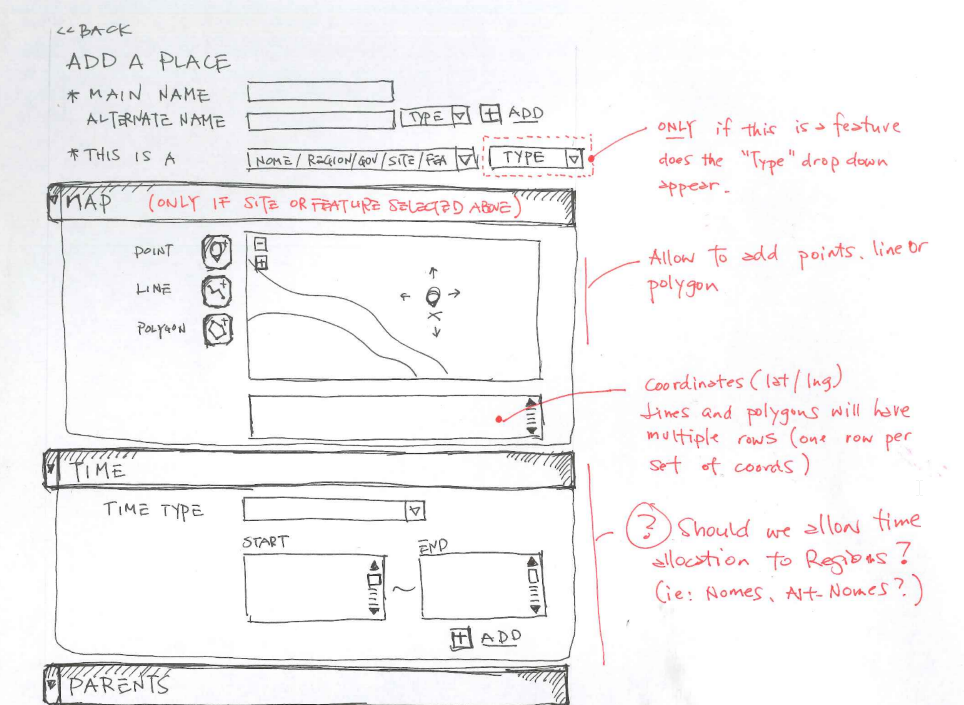 << BACK
ADD A PLACE
* MAIN NAME
ALTERNATE NAME TYPE + ADD
* THIS IS A NOME / REGION / GOV / SITE / FEA TYPE
ONLY if this is a feature
does the "Type" drop down
appear.
MAP (ONLY IF SITE OR FEATURE SELECTED ABOVE)
POINT
LINE
POLYGON
Allow to add points, line or
polygon
Coordinates (lat / lng)
Lines and polygons will have
multiple rows (one row per
set of coords)
TIME
TIME TYPE
START
END
~
+ ADD
? Should we allow time
allocation to Regions?
(ie: Nomes, Alt-Nomes?)
PARENTS